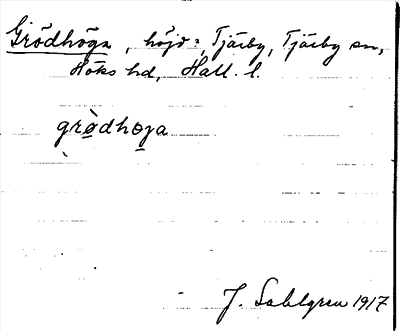 Grödhöga, höjd:, Tjärby, Tjärby sn,
Höks hd, Hall. l.
grø̀dhoga
J. Sahlgren 1917